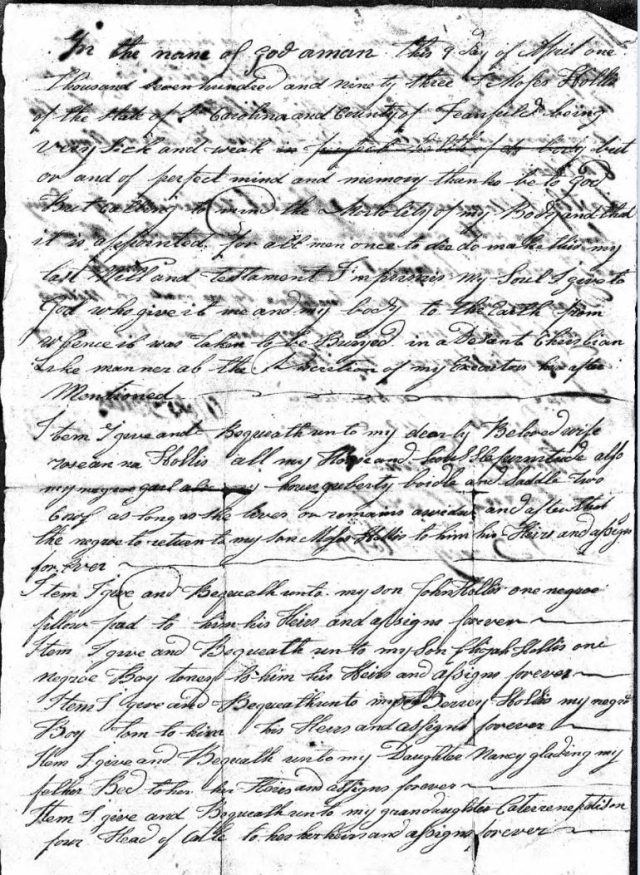 In the name of god aman this 9 Day of April one
Thousand seven hundred and ninety three I Moses Hollis
of the State of So Carolina and County of Fearfield being
very sick and weak in perfect body but
and of perfect mind and memory thanks be to God
to mind the Mortolity of my Body and that
it is appointed for all men once to die do make this my
last Will and testament my Soul I give to
God who give it me and my body to the Earth from
whence it was taken to be Buryed in a Desent
Like manner at the Discretion of my Executors
Mentioned
Item I give and Bequeath unto my dearly Beloved wife
Hollis all my and furnitude also
my negroe bridle and Saddle two
as long as she lives or remains a widow and after that
the negroe to return to my son Moses Hollis to him his Heirs and assigns
for ever
Item I give and Bequeath unto my son John Hollis one negroe
fellow to him his Heirs and assigns forever
Item I give and Bequeath unto my Son Elijah Hollis one
negroe Boy toney to him his Heirs and assigns forever
Item I give and Bequeath unto my Berrey Hollis my negroe
Boy to him his Heirs and assigns forever
Item I give and Bequeath unto my Daughter Nancy glading my
fether Bed to her his Heirs and assigns forever
Item I give and Bequeath unto my grandaughter
four Head of to her her heirs and assigns forever